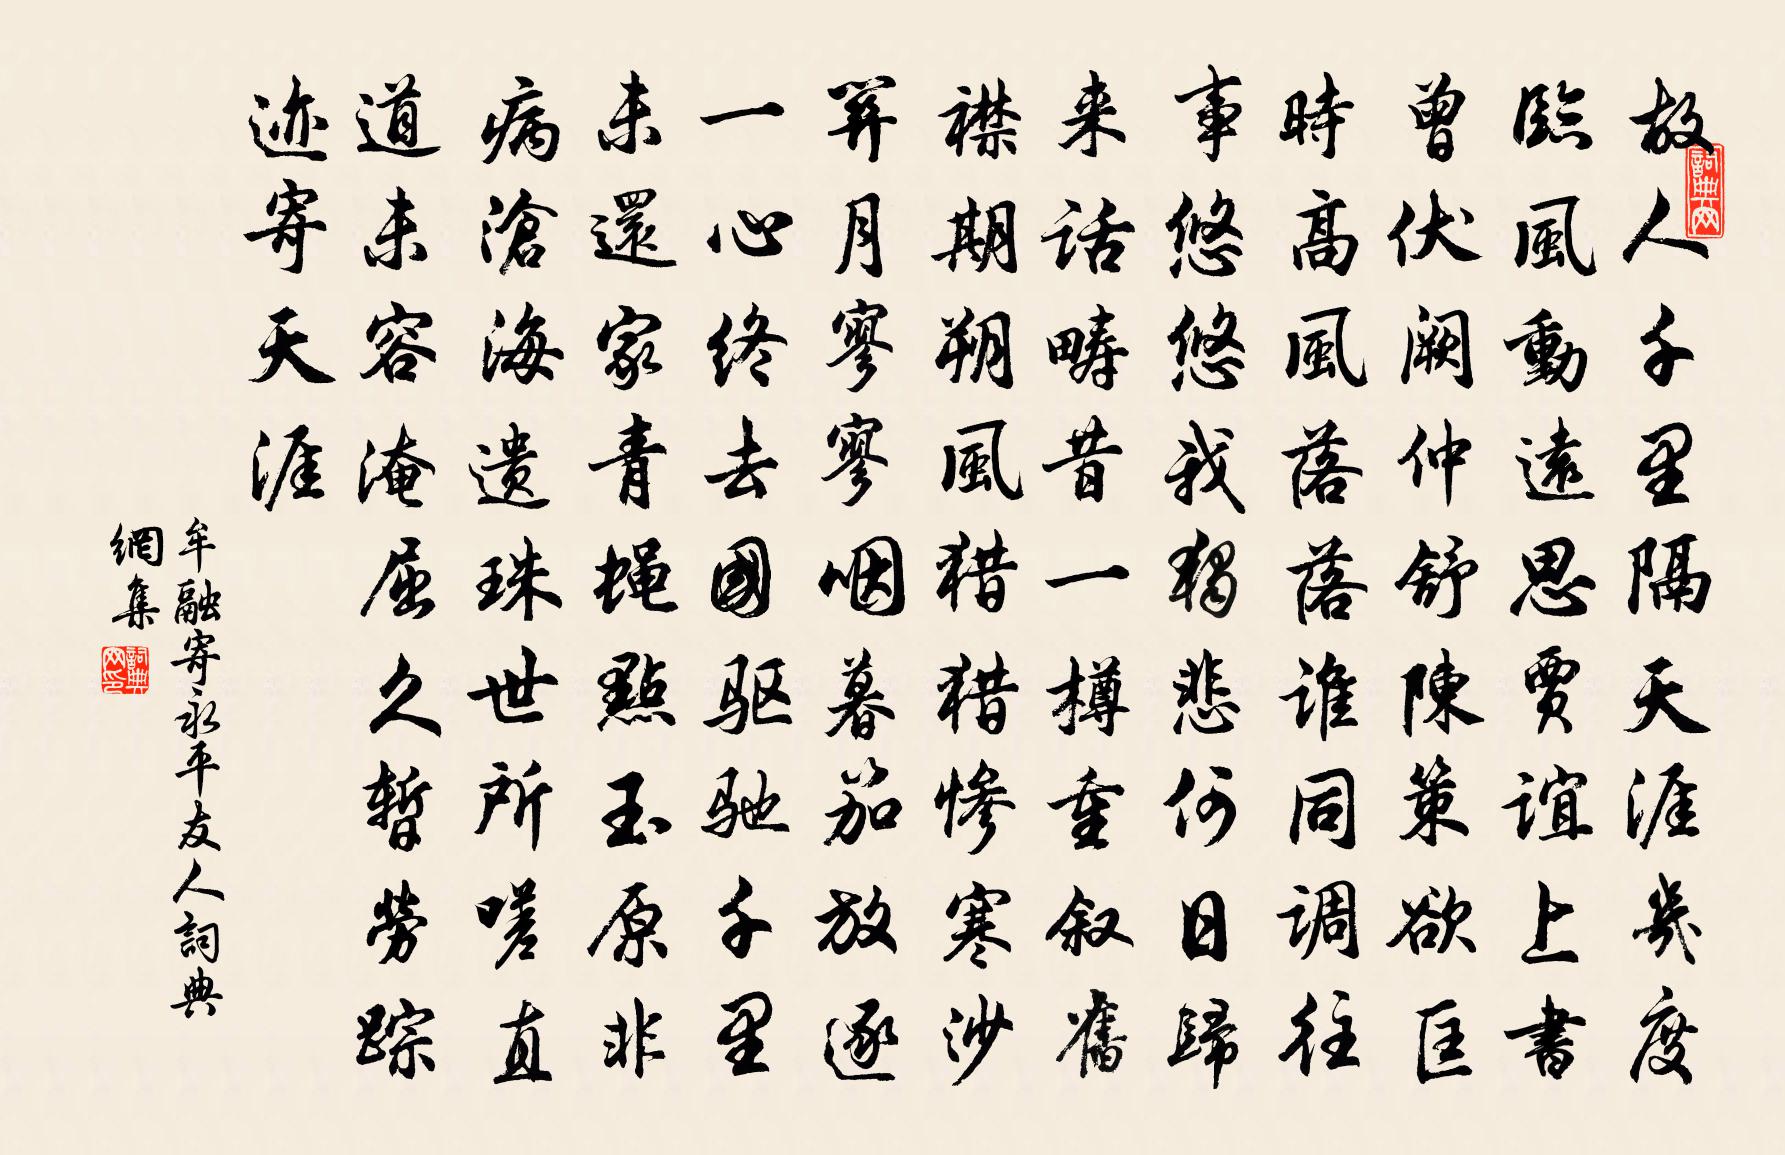 故人千里隔天涯幾度
臨風動遠思賈誼上書
曾伏阙仲舒陳策欲匡
時高風落落誰同調往
事悠悠我獨悲何日歸
来話畴昔一樽重叙舊
襟期朔風猎猎慘寒沙
笄月寥寥咽暮笳放逐
一心终去國驱驰千里
未還家青蝇點玉原非
病滄海遗珠世所嗟直
道未容淹屈久暫勞踪
迹寄天涯
牟融寄永平友人詞典
網集
詞典网
詞典网印